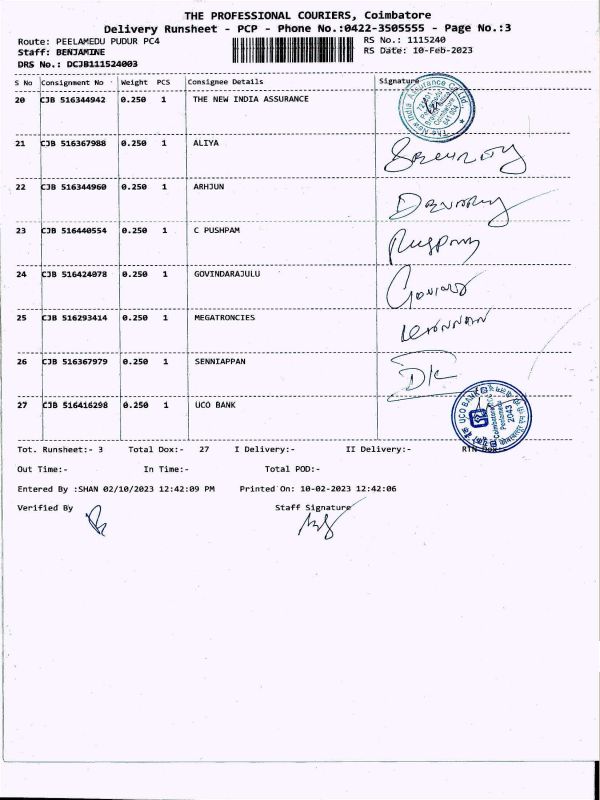 THE PROFESSIONAL COURIERS, Coimbatore
Delivery Runsheet - PCP - Phone No.:0422-3505555 - Page No.:3
Route: PEELAMEDU PUDUR PC4 RS No.: 1115240
Staff: BENJAMINE RS Date: 10-Feb-2023
DRS No.: DCJB111524003
S No Consignment No Weight PCS Consignee Details Signature
20 CJB 516344942 0.250 1 THE NEW INDIA ASSURANCE
The New India Assurance Co. Ltd.
21 CJB 516367988 0.250 1 ALIYA Security
22 CJB 516344960 0.250 1 ARHJUN
23 CJB 516440554 0.250 1 C PUSHPAM
24 CJB 516424078 0.250 1 GOVINDARAJULU
25 CJB 516293414 0.250 1 MEGATRONCIES
26 CJB 516367979 0.250 1 SENNIAPPAN DK
27 CJB 516416298 0.250 1 UCO BANK
UCO BANK
2043
Tot. Runsheet:- 3 Total Dox:- 27 I Delivery:- II Delivery:- RTN Dox:-
Out Time:- In Time:- Total POD:-
Entered By :SHAN 02/10/2023 12:42:09 PM Printed On: 10-02-2023 12:42:06
Verified By Staff Signature